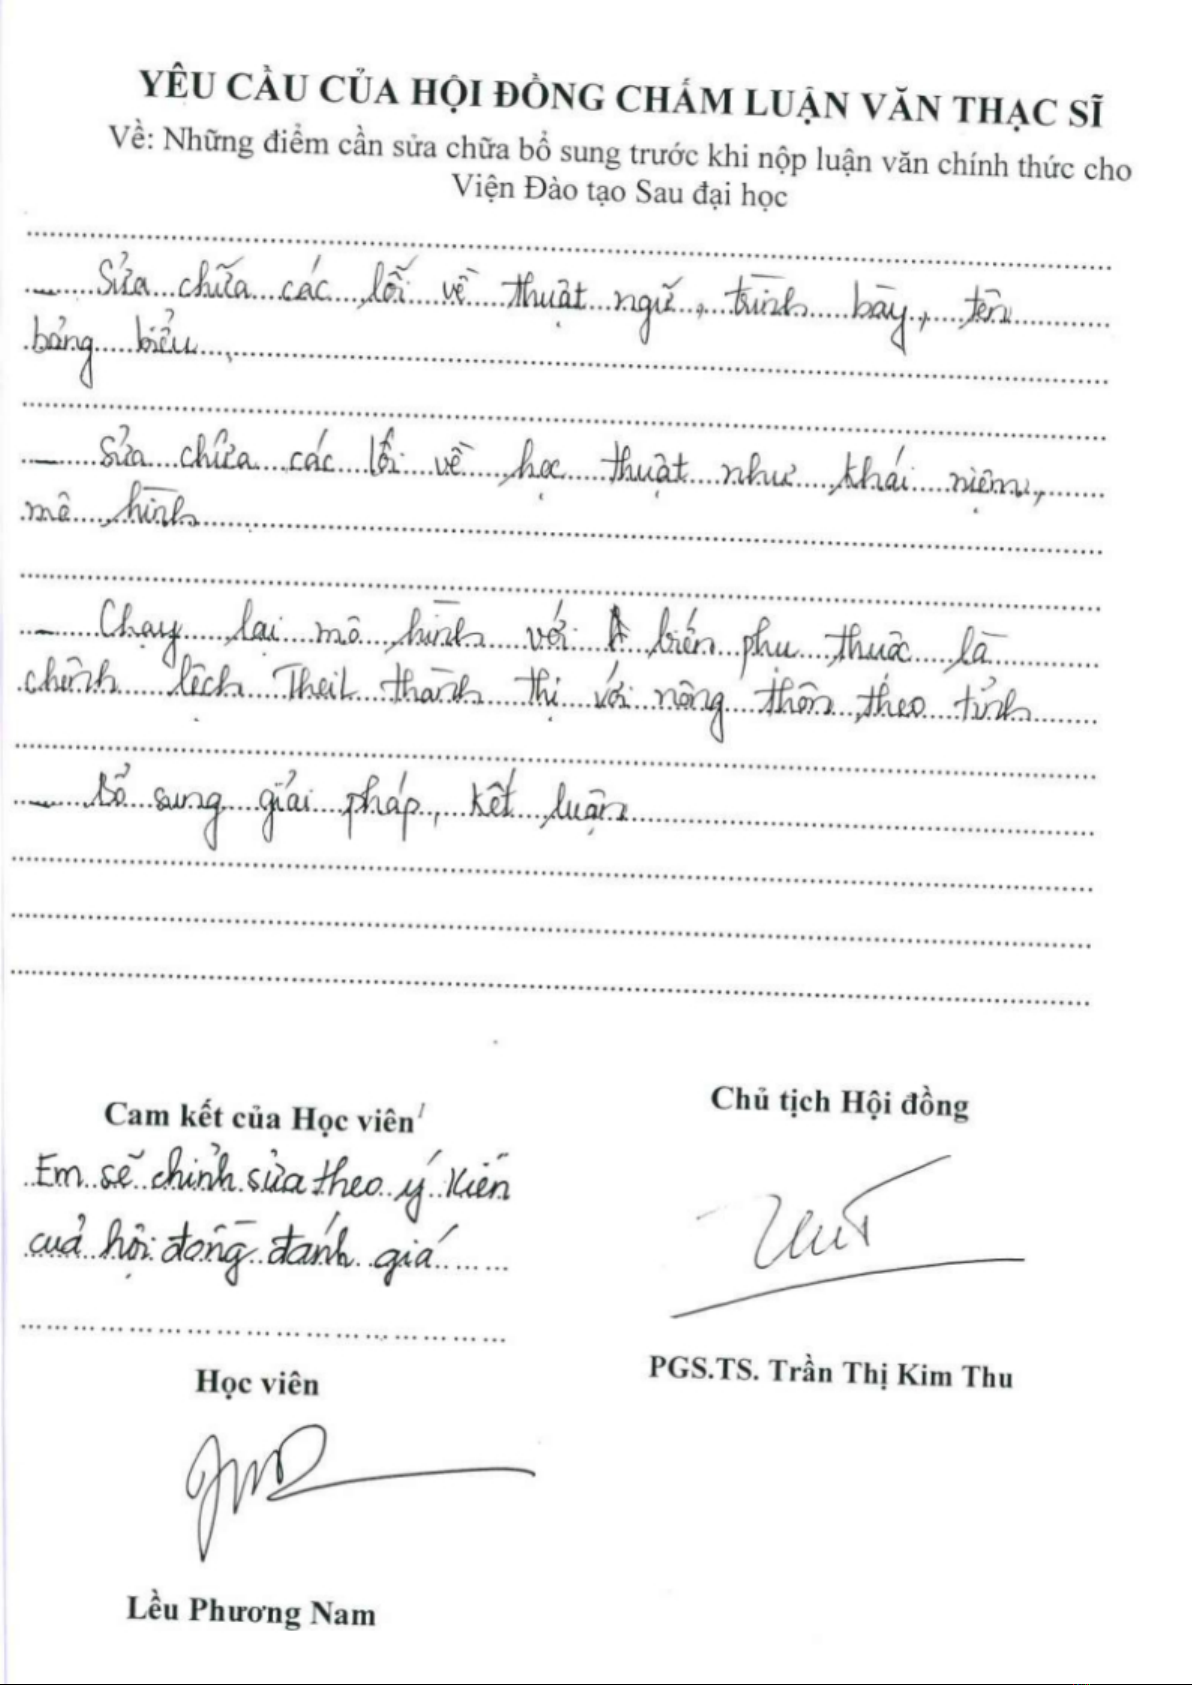 YÊU CẦU CỦA HỘI ĐỒNG CHẤM LUẬN VĂN THẠC SĨ
Về: Những điểm cần sửa chữa bổ sung trước khi nộp luận văn chính thức cho
Viện Đào tạo Sau đại học
- Sửa chữa các lỗi về thuật ngữ, trình bày, tên
bảng biểu,
- Sửa chữa các lỗi về học thuật như khái niệm,
mô hình
- Chạy lại mô hình với biến phụ thuộc là
chênh lệch Theil thành thị với nông thôn, theo tỉnh
- Bổ sung giải pháp, kết luận
Chủ tịch Hội đồng
Cam kết của Học viên¹
Em sẽ chỉnh sửa theo ý kiến
của hội đồng đánh giá
PGS.TS. Trần Thị Kim Thu
Học viên
Lều Phương Nam